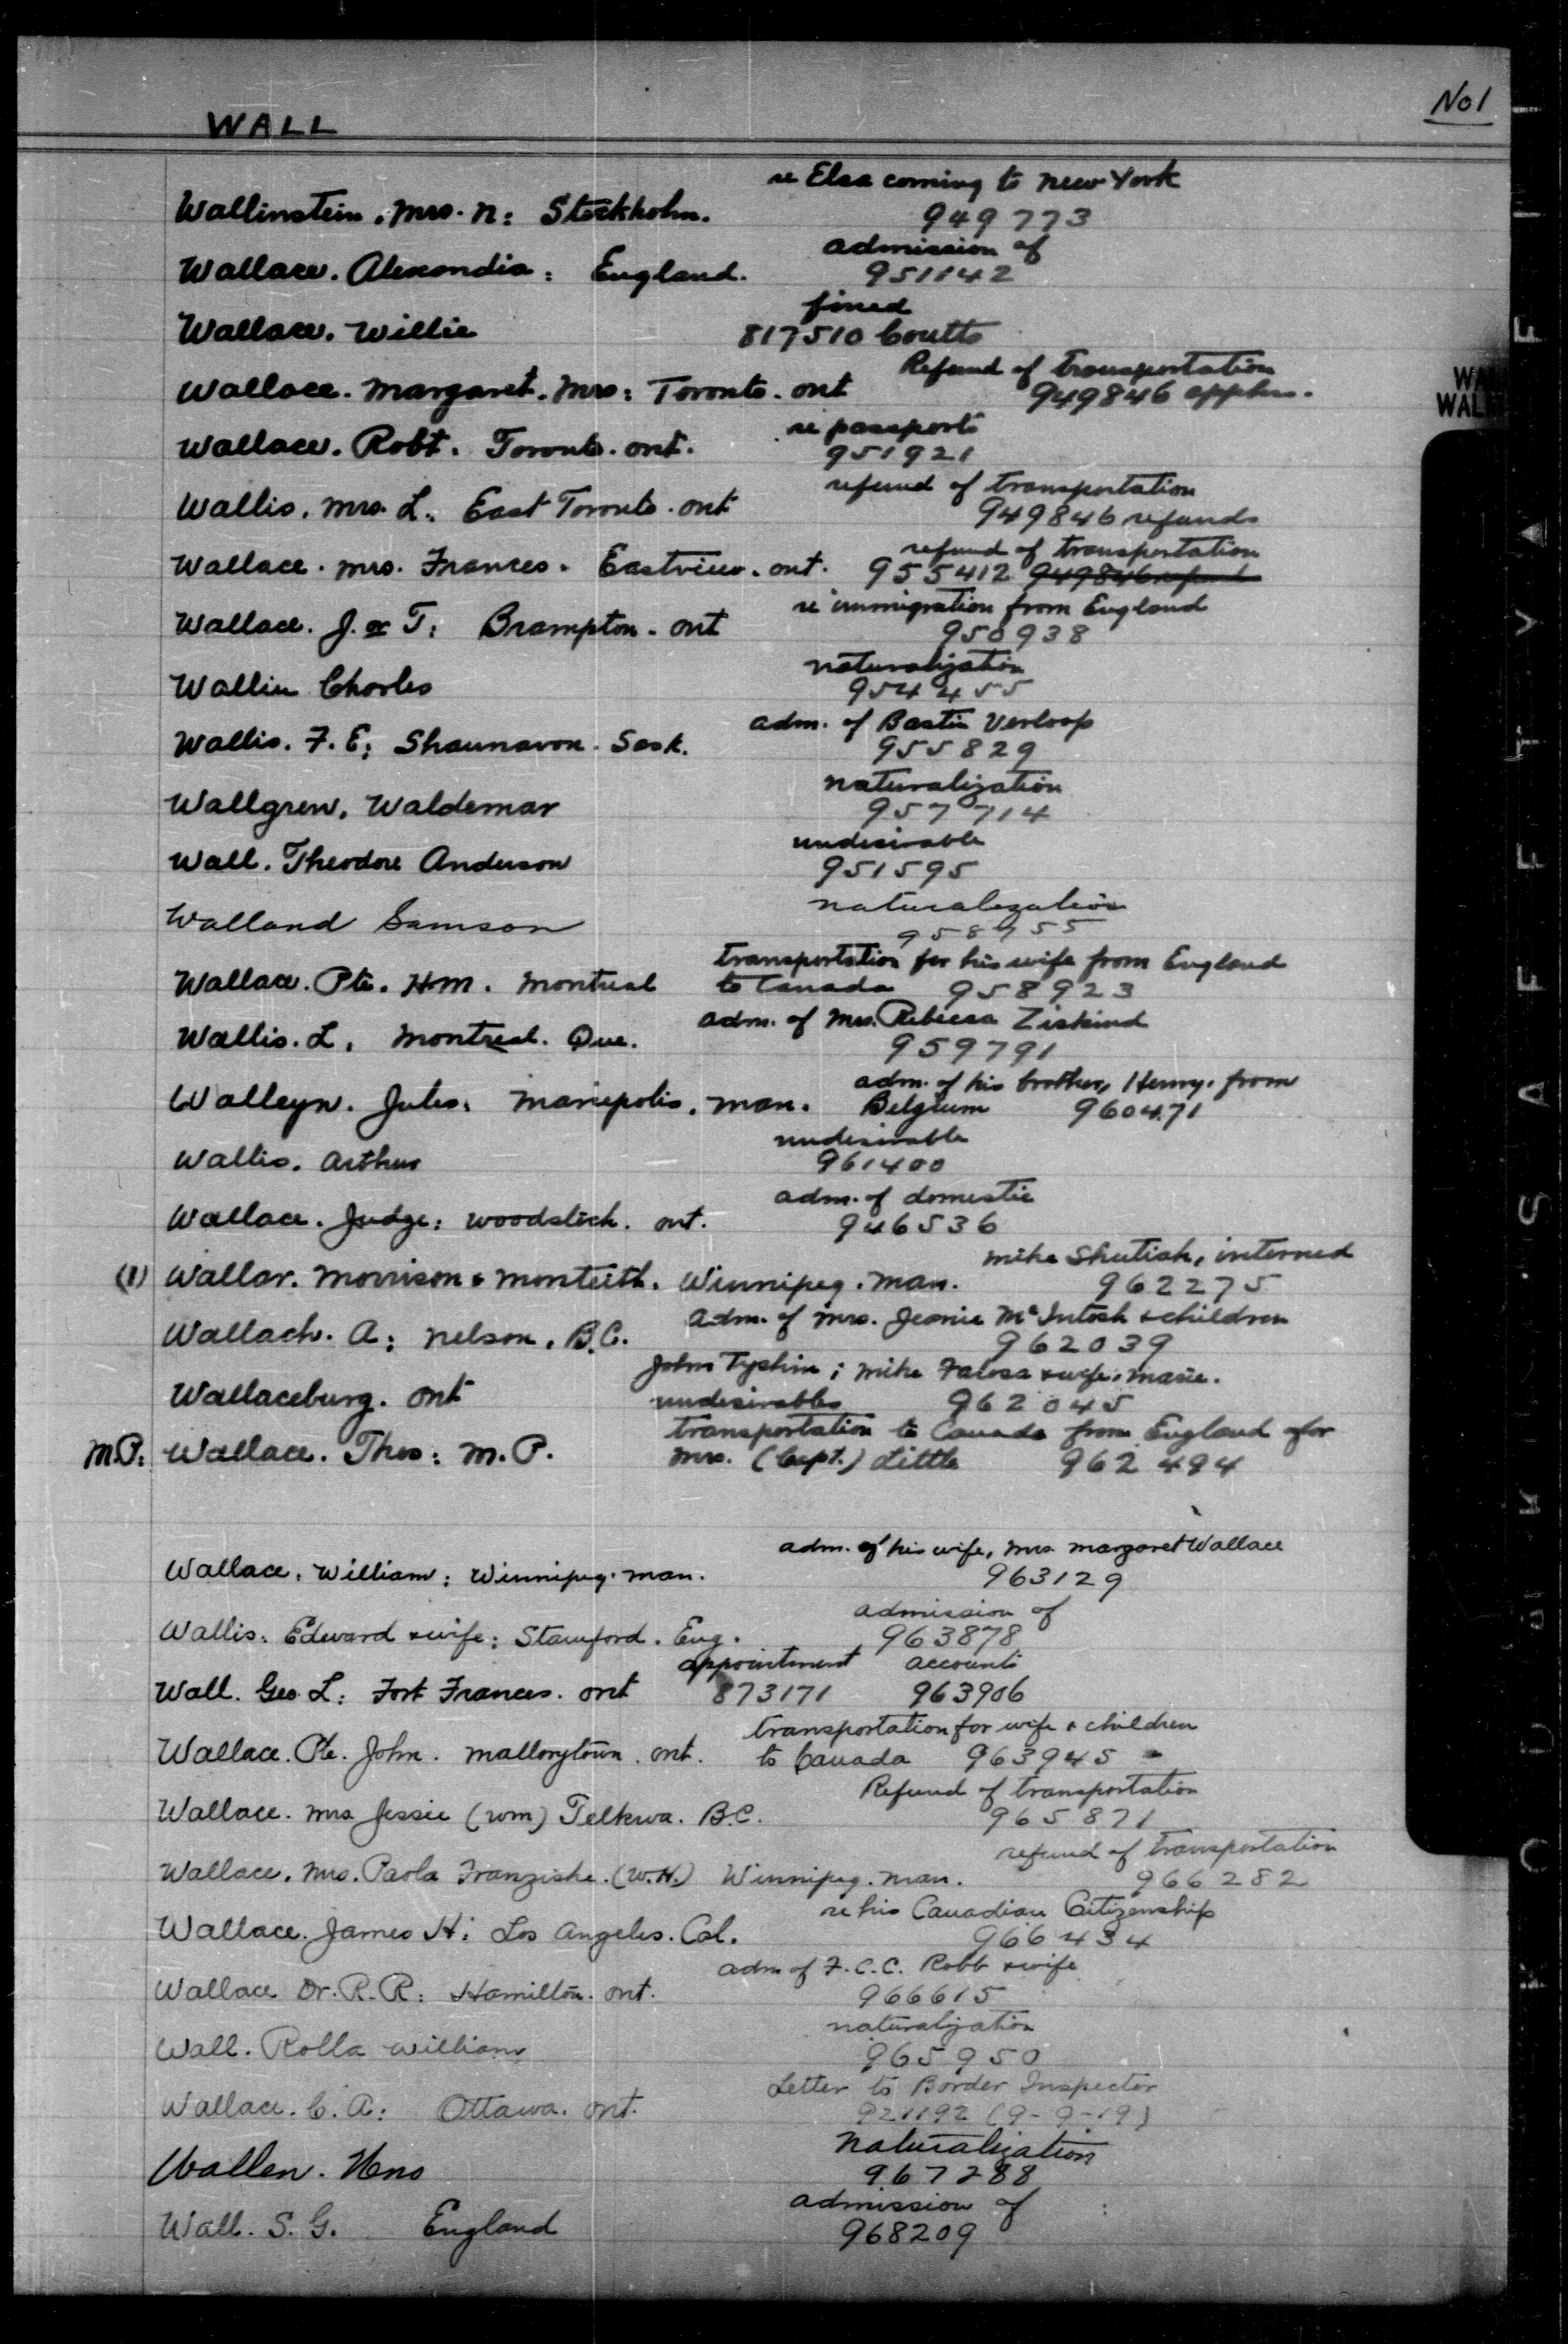 No1
WALL
re Elsa coming to New York
Wallinstein, Mrs. N: Stockholm. 949773
admission of
Wallace. Alexandia: England. 951142
fined
Wallace. Willie 817510 Coutts
Refund of transportation
Wallace. Margaret. Mrs: Toronto. Ont 949846 applns.
re passports
Wallace. Robt. Toronto. Ont. 951921
refund of transportation
Wallis. Mrs. L. East Toronto. Ont 949846 refunds
refund of transportation
Wallace. Mrs. Frances. Eastview. Ont. 955412 949846 refund
re immigration from England
Wallace. J. or T: Brampton. Ont 950938
naturalization
Wallin Charles 954455
adm. of Bastin Verloop
Wallis. F. E: Shaunavon. Sask. 955829
naturalization
Wallgren, Waldemar 957714
undesirable
Wall. Theodore Anderson 951595
naturalization
Walland Samson 958755
transportation for his wife from England
Wallace. Pte. H.M. Montreal to Canada 958923
adm. of Mrs. Rebecca Ziskind
Wallis. L. Montreal. Que. 959791
adm. of his brother, Henry. from
Walleyn. Jules. Mariepolis. Man. Belgium 960471
undesirable
Wallis. Arthur 961400
adm. of domestic
Wallace. Judge: Woodstock. Ont. 946536
Mike Shutiak, interned
(1) Wallar. Morrison & Monteith. Winnipeg. Man. 962275
Adm. of Mrs. Jeanie McIntosh & children
Wallach. A: Nelson, B.C. 962039
John Tyshin; Mike Falosa & wife, Marie.
Wallaceburg. Ont undesirables 962045
transportation to Canada from England for
M.P: Wallace. Thos: M.P. Mrs. (Capt.) Little 962494
adm. of his wife, Mrs Margaret Wallace
Wallace. William: Winnipeg. Man. 963129
admission of
Wallis. Edward & wife: Stamford. Eng. 963878
appointment accounts
Wall. Geo. L: Fort Frances. Ont 873171 963906
transportation for wife & children
Wallace. Pte. John. Mallorytown. Ont. to Canada 963945
Refund of transportation
Wallace. Mrs Jessie (Wm) Telkwa. B.C. 965871
refund of transportation
Wallace. Mrs. Paola Franziska. (W.H.) Winnipeg. Man. 966282
re his Canadian Citizenship
Wallace. James H: Los Angeles. Cal. 966434
adm of F.C.C. Robb & wife
Wallace Dr. R.R: Hamilton. Ont. 966615
naturalization
Wall. Rolla William 965950
Letter to Border Inspector
Wallace. C. A: Ottawa. Ont. 921192 (9-9-19)
Naturalization
Wallen. 967288
admission of
Wall. S. G. England 968209
KODAK SAFETY FI